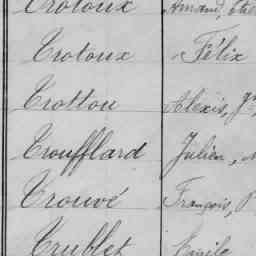 Trotoux Armand,
Trotoux Félix
Trottou Alexis,
Troufflard Julien,
Trouvé François,
Trublet Emile